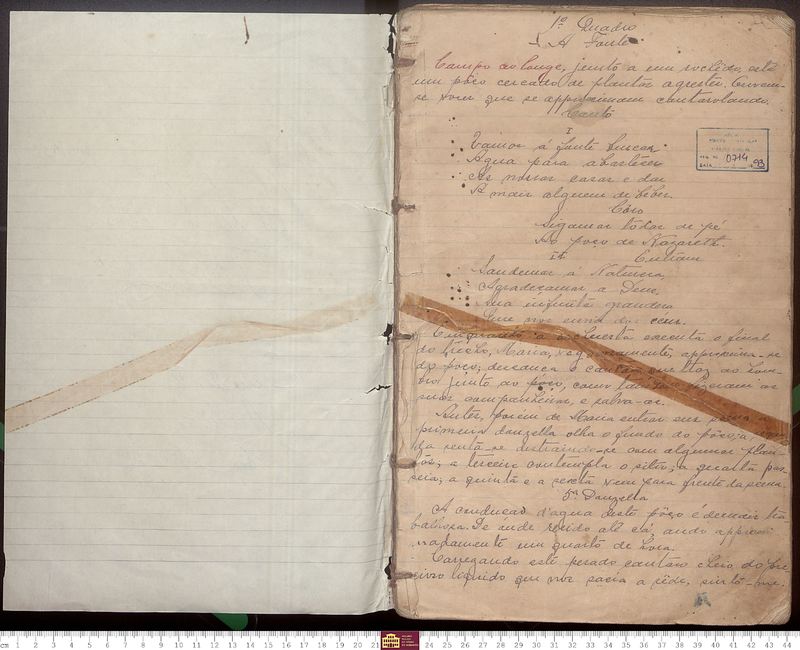 1º Quadro
A Fonte
Campo ao longe, junto a um rochedo, está
um pôço cercado de plantas agrestes. Ouvem-
se vozes que se approximam cantarolando.
Canto
I
Vamos á fonte buscar
Agua para abastecer
As nossas casas e dar
A mais alguem de beber.
Côro
Sigamos todas de pé
Ao poço de Nazareth.
II Entram
Saudemos á Natureza,
Agradeçamos a Deus,
Sua infinita grandeza
Que nos
Emquanto a orchestra executa o final
do trecho, Maria, vagarosamente, approxima-se
do poço; descança o cantaro que traz ao hom-
bro junto ao poço, como tambem fizeram as
suas companheiras, e salva-as.
Antes, porém de Maria entrar em scena a
primeira danzella olha o fundo do pôço; a
da senta-se distraindo-se com algumas plan-
tas; a terceira contempla o sitio; a quarta pas-
seia; a quinta e a sexta vem para frente da scena.
5ª Danzella
A conducão d'agua deste pôço é demais tra
balhosa. De onde resido até cá, ando approxi
madamente um quarto de hora.
Carregando este pesado cantaro cheio do pre-
cioso liquido que nos sacia a sêde, sinto-me
0714
93
cm 1 2 3 4 5 6 7 8 9 10 11 12 13 14 15 16 17 18 19 20 21 24 25 26 27 28 29 30 31 32 33 34 35 36 37 38 39 40 41 42 43 44